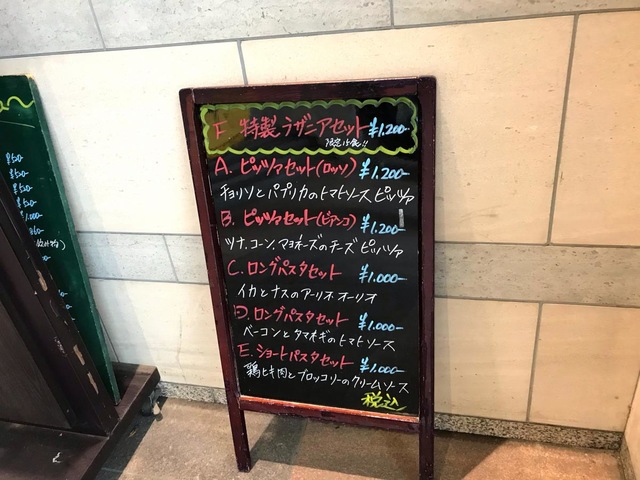 F 特製ラザニアセット ¥1.200-
限定15食!!
A. ピッツァセット(ロッソ) ¥1.200-
チョリソとパプリカのトマトソースピッツァ
B. ピッツァセット(ビアンコ) ¥1.200-
ツナ、コーン、マヨネーズのチーズピッツァ
C. ロングパスタセット ¥1.000-
イカとナスのアーリオオーリオ
D. ロングパスタセット ¥1.000-
ベーコンとタマネギのトマトソース
E. ショートパスタセット ¥1.000-
鶏ヒキ肉とブロッコリーのクリームソース
税込
¥50-
¥50-
¥50-